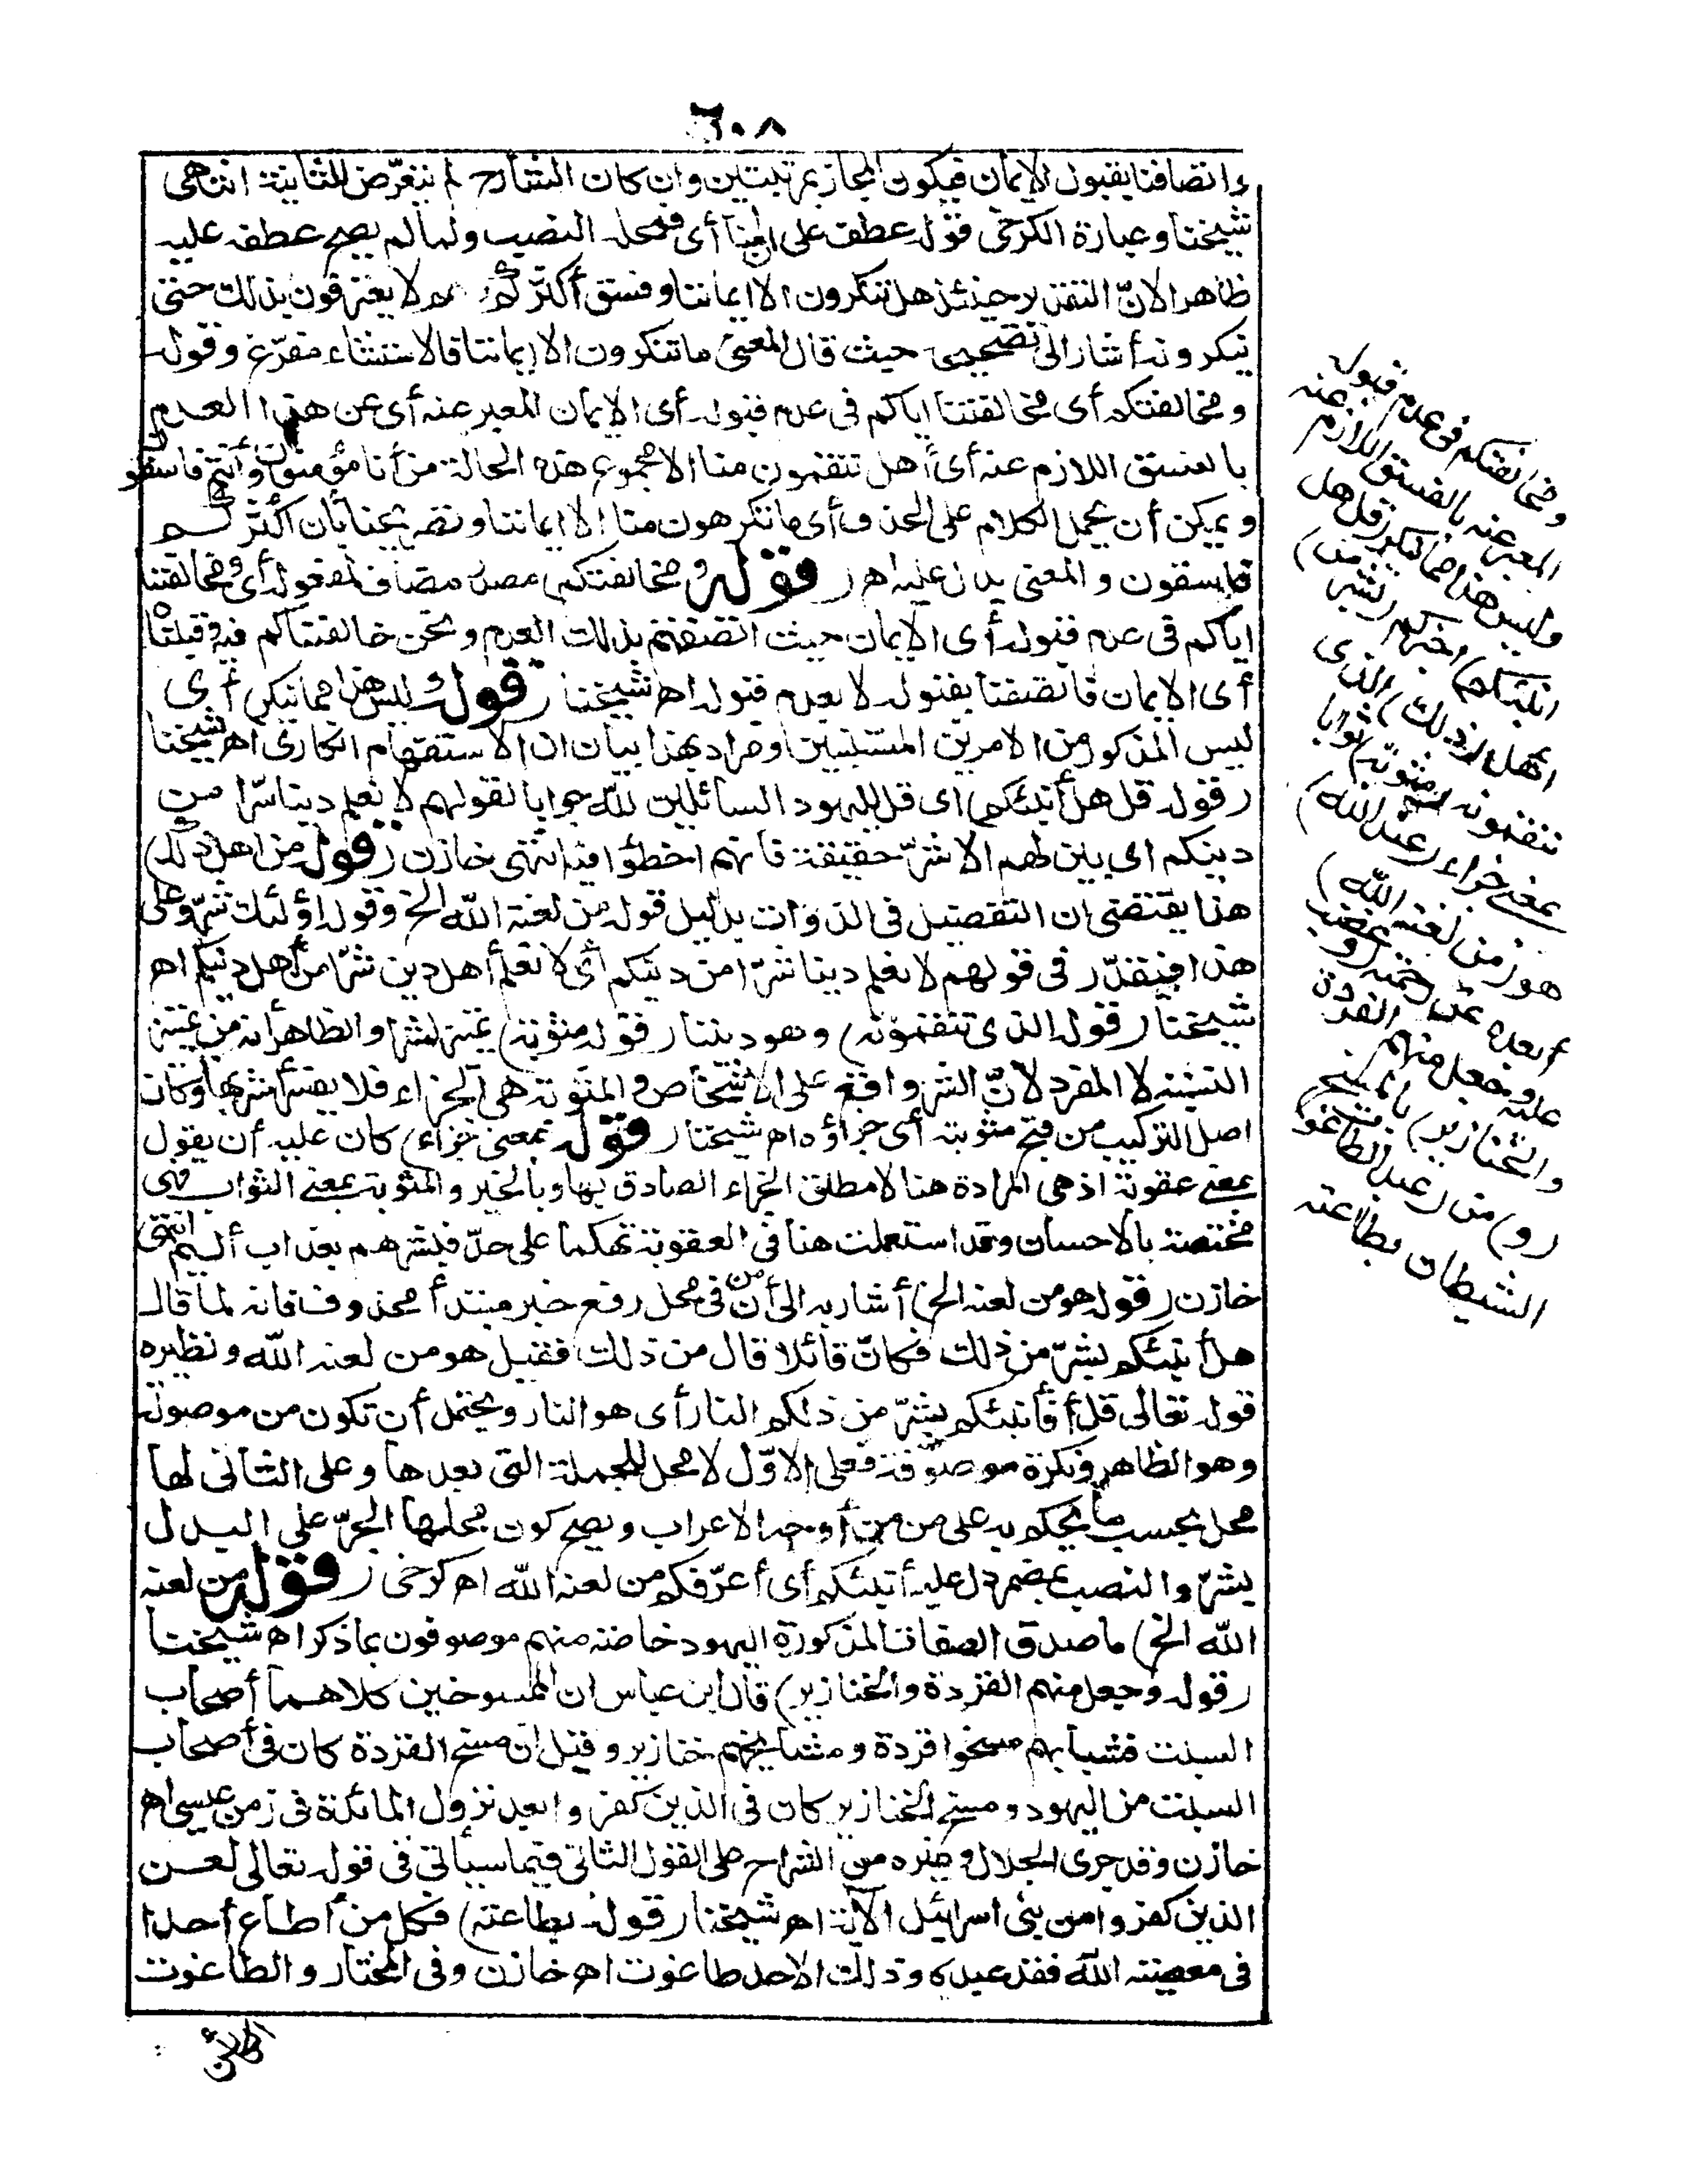 ٦٠٨
واتصافنا بقبول الايمان فيكون المجاز بمرتبتين وان كان الشارح لم يتعرّض للثانية انتهى
شيخنا وعبارة الكرخى قوله عطف على أن آمنا أى فمحله النصب ولما لم يصح عطفه عليه
ظاهرا لانّ التقدير حينئذ هل تنكرون الا ايماننا وفسق أكثركم وهم لا يعترفون بذلك حتى
ينكرونه أشار الى تصحيحه حيث قال المعنى ما تنكرون الا ايماننا فالاستثناء مفرّغ وقوله
ومخالفتكم أى مخالفتنا اياكم فى عدم قبوله أى الايمان المعبر عنه أى عن هذا العدم
بالفسق اللازم عنه أى هل تنقمون منا الا مجموع هذه الحالة من أنا مؤمنون وأنتم فاسقون
ويمكن أن يحمل الكلام على الحذف أى ما تكرهون منا الا ايماننا وتصريحنا بأن أكثركم
فاسقون والمعنى يدل عليه اهـ (قوله ومخالفتكم) مصدر مضاف لمفعوله أى ومخالفتنا
اياكم فى عدم قبوله أى الايمان حيث اتصفتم بذلك العدم ونحن خالفناكم فيه وقبلناه
أى الايمان فاتصفنا بقبوله لا بعدم قبوله اهـ شيخنا (قوله وليس هذا مما ينكر) أى
ليس المذكور من الامرين المستثنيين ومراده بهذا بيان ان الاستفهام انكارى اهـ شيخنا
(قوله قل هل أنبئكم) اى قل لليهود السائلين لك جوابا لقولهم لا نعلم دينا شرّا من
دينكم اى بين لهم الاشرّ حقيقة فانهم اخطؤا فيه انتهى خازن (قوله من اهل ذلك)
هذا يقتضى ان التفصيل فى الذوات بدليل قوله من لعنة الله الخ وقوله اؤلئك شرّ وعلى
هذا فيقدّر فى قولهم لا نعلم دينا شرّا من دينكم أى لا نعلم أهل دين شرّا من أهل دينكم اهـ
شيخنا (قوله الذى تنقمونه) وهو ديننا (قوله مثوبة) تمييز لشر والظاهر أنه من تمييز
النسبة لا المفرد لانّ الشر واقع على الاشخاص والمثوبة هى الجزاء فلا يفسر أشر بها وكان
اصل التركيب من قبح مثوبته أى جزاؤه اهـ شيخنا (قوله بمعنى جزاء) كان عليه أن يقول
بمعنى عقوبة اذ هى المرادة هنا لا مطلق الجزاء الصادق بها وبالخير والمثوبة بمعنى الثواب فهى
مختصة بالاحسان وقد استعملت هنا فى العقوبة تهكما على حدّ فبشرهم بعذاب أليم انتهى
خازن (قوله هو من لعنه الخ) أشار به الى أنّ من فى محل رفع خبر مبتدأ محذوف فانه لما قال
هل أنبئكم بشرّ من ذلك فكانّ قائلا قال من ذلك فقيل هو من لعنه الله ونظيره
قوله تعالى قل أفأنبئكم بشرّ من ذلكم النار أى هو النار ويحتمل أن تكون من موصولة
وهو الظاهر ونكرة موصوفة فعلى الاوّل لا محل للجملة التى بعدها وعلى الثانى لها
محل بحسب ما يحكم به على من من أوجه الاعراب ويصح كون محلها الجرّ على البدل
بشرّ والنصب بمضمر دل عليه أنبئكم أى أعرّفكم من لعنه الله اهـ كرخى (قوله من لعنه
الله الخ) ما صدق الصفات المذكورة اليهود خاصة منهم موصوفون بما ذكر اهـ شيخنا
(قوله وجعل منهم القردة والخنازير) قال ابن عباس ان الممسوخين كلاهما أصحاب
السبت فشبابهم مسخوا قردة ومشايخهم خنازير وقيل ان مسخ القردة كان فى أصحاب
السبت من اليهود ومسخ الخنازير كان فى الذين كفروا بعد نزول المائدة فى زمن عيسى اهـ
خازن وقد جرى الجلال وغيره من الشراح على القول الثانى فيما سيأتى فى قوله تعالى لعن
الذين كفروا من بنى اسرائيل الآية اهـ شيخنا (قوله بطاعته) فكل من أطاع أحدا
فى معصية الله فقد عبده وذلك الاحد طاغوت اهـ خازن وفى المختار والطاغوت
ومخالفتكم فى عدم قبوله
المعبر عنه بالفسق اللازم عنه
وليس هذا مما ينكر (قل هل
أنبئكم) أخبركم (بشر من)
أهل (ذلك) الذى
تنقمونه (مثوبة) ثوابا
بمعنى جزاء (عند الله)
هو (من لعنه الله)
أبعده عن رحمته (وغضب
عليه وجعل منهم القردة
والخنازير) بالمسخ
(و) من (عبد الطاغوت)
الشيطان بطاعته